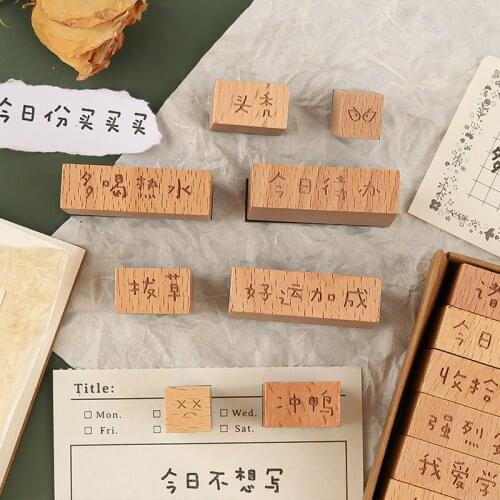 头秃
今日份买买买
多喝热水
今日待办
拔草
好运加成
今日
收拾
强烈
我爱学
Title:
Mon.
Wed.
Fri.
Sat.
冲鸭
今日不想写